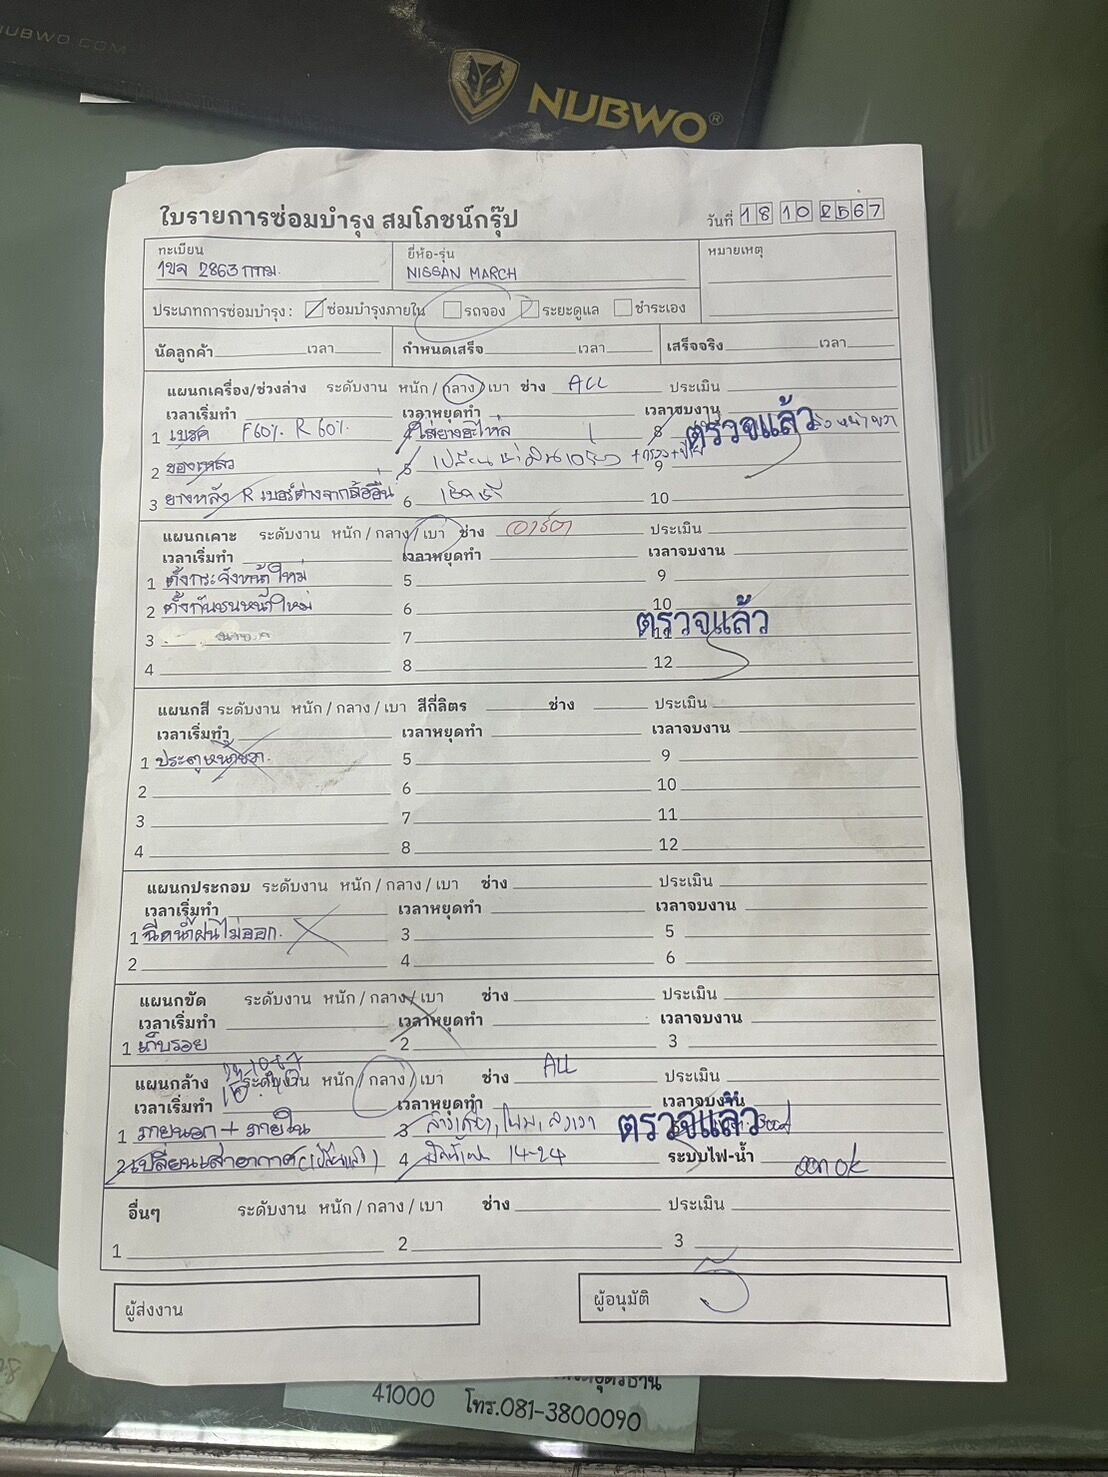 NUBWO.COM
NUBWO®
ใบรายการซ่อมบำรุง สมโภชน์กรุ๊ป
วันที่ 18 10 2567
ทะเบียน ยี่ห้อ-รุ่น หมายเหตุ
1ขจ 2863 กทม. NISSAN MARCH
ประเภทการซ่อมบำรุง : ซ่อมบำรุงภายใน รถจอง ระยะดูแล ชำระเอง
นัดลูกค้า เวลา กำหนดเสร็จ เวลา เสร็จจริง เวลา
แผนกเครื่อง/ช่วงล่าง ระดับงาน หนัก / กลาง / เบา ช่าง ALL ประเมิน
เวลาเริ่มทำ เวลาหยุดทำ เวลาจบงาน
1 เบรค F60%. R 60%. 4 ใส่ยางอะไหล่ 8 ตรวจแล้ว
2 ของเหลว 5 9
3 ยางหลัง R เบอร์ต่างจากล้ออื่น 6 10
แผนกเคาะ ระดับงาน หนัก / กลาง / เบา ช่าง ประเมิน
เวลาเริ่มทำ เวลาหยุดทำ เวลาจบงาน
1 ตั้งกระจังหน้าใหม่ 5 9
2 ตั้งกันชนหน้าใหม่ 6 10
3 7 11 ตรวจแล้ว
4 8 12
แผนกสี ระดับงาน หนัก / กลาง / เบา สีกี่ลิตร ช่าง ประเมิน
เวลาเริ่มทำ เวลาหยุดทำ เวลาจบงาน
1 ประตูหน้าขวา 5 9
2 6 10
3 7 11
4 8 12
แผนกประกอบ ระดับงาน หนัก / กลาง / เบา ช่าง ประเมิน
เวลาเริ่มทำ เวลาหยุดทำ เวลาจบงาน
1 ฉีดน้ำฝนไม่ออก. 3 5
2 4 6
แผนกขัด ระดับงาน หนัก / กลาง / เบา ช่าง ประเมิน
เวลาเริ่มทำ เวลาหยุดทำ เวลาจบงาน
1 เก็บรอย 2 3
แผนกล้าง ระดับงาน หนัก / กลาง / เบา ช่าง ALL ประเมิน
เวลาเริ่มทำ เวลาหยุดทำ เวลาจบงาน
1 ภายนอก + ภายใน 3 ตรวจแล้ว
2 เปลี่ยนเสาอากาศ 4 14-24 ระบบไฟ-น้ำ ok
อื่นๆ ระดับงาน หนัก / กลาง / เบา ช่าง ประเมิน
1 2 3
ผู้ส่งงาน ผู้อนุมัติ
41000 โทร.081-3800090